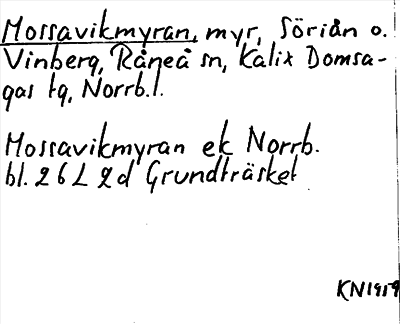 Mossavikmyran, myr, Sörián o.
Vinberg, Råneå sn, Kalix Domsa-
gas tg, Norrb.l.
Mossavikmyran ek Norrb.
bl. 26L 2d Grundträsket
KN1959